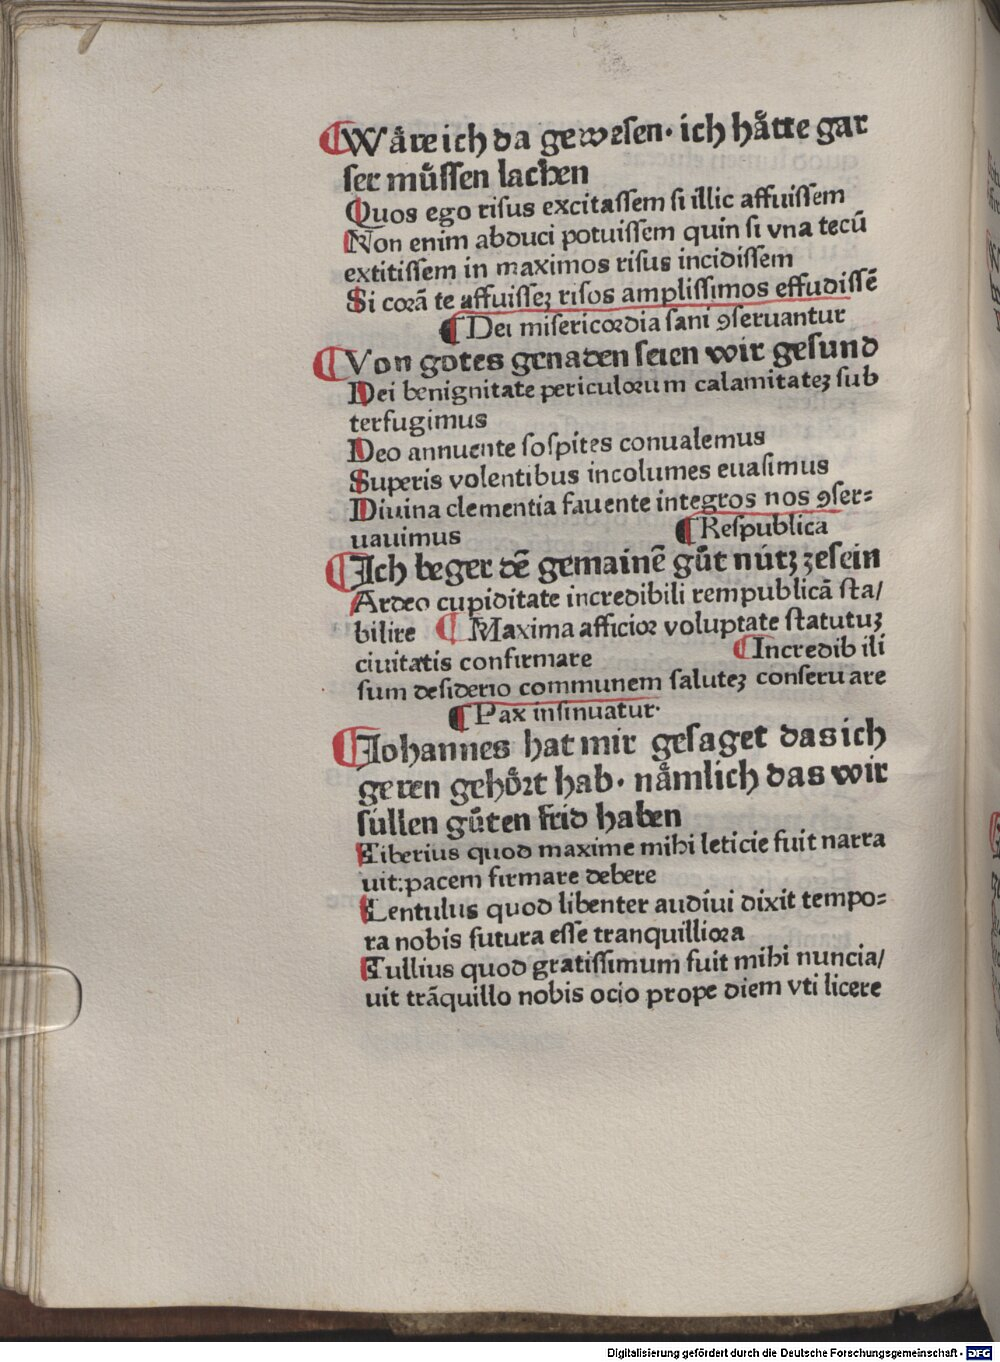 ¶Wåre ich da gewesen · ich håtte gar
ser mů̈ssen lachen
Quos ego risus excitassem si illic affuissem
Non enim abduci potuissem quin si vna tecū
extitissem in maximos risus incidissem
Si corā te affuisseꝫ risos amplissimos effudissē
¶Dei misericordia sani ꝯseruantur
¶Von gotes genaden seien wir gesund
Dei benignitate periculorum calamitateꝫ sub
terfugimus
Deo annuente sospites conualemus
Superis volentibus incolumes euasimus
Diuina clementia fauente integros nos ꝯser=
uauimus ¶Respublica
¶Ich beger dē gemainē gůt nútz zesein
Ardeo cupiditate incredibili rempublicā sta/
bilire ¶Maxima afficior voluptate statutuꝫ
ciuitatis confirmare ¶Incredibili
sum desiderio communem saluteꝫ conseruare
¶Pax insinuatur·
¶Johannes hat mir gesaget das ich
geren gehört hab · nåmlich das wir
sullen gůten frid haben
Tiberius quod maxime mihi leticie fuit narra
uit:pacem firmare debere
Lentulus quod libenter audiui dixit tempo=
ra nobis futura esse tranquilliora
Tullius quod gratissimum fuit mihi nuncia/
uit trāquillo nobis ocio prope diem vti licere
Digitalisierung gefördert durch die Deutsche Forschungsgemeinschaft - DFG